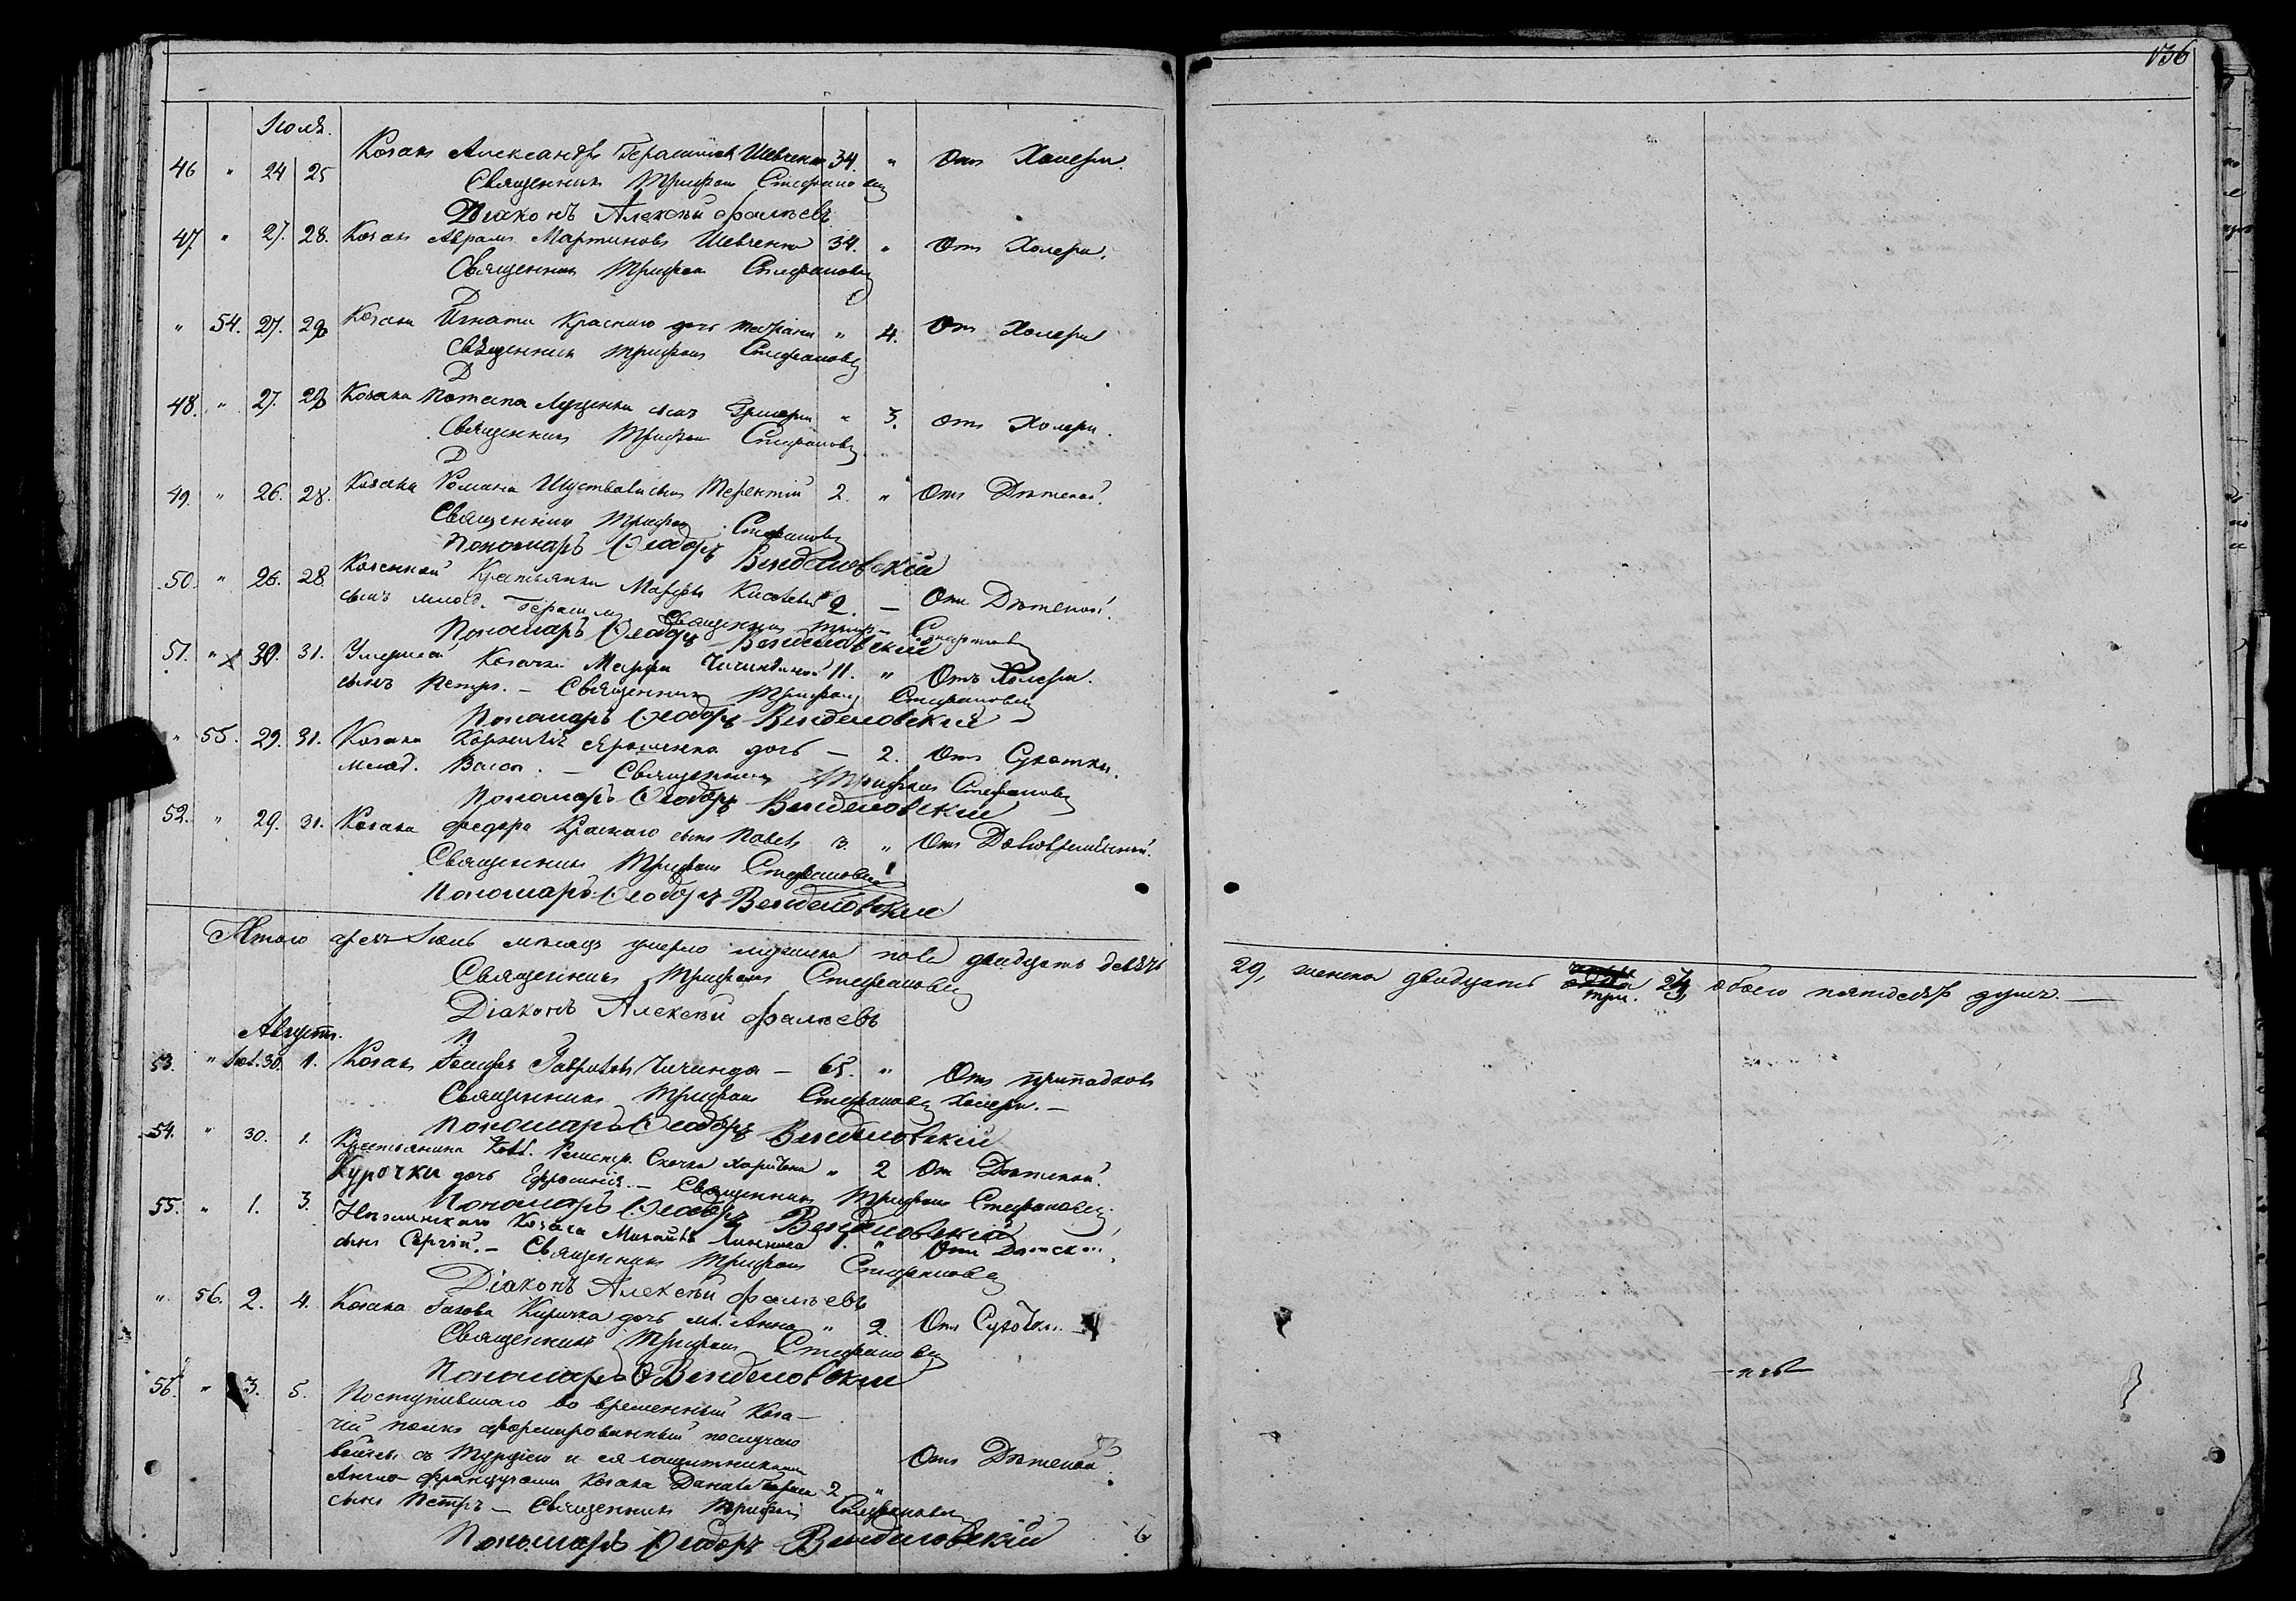 136
Іюль.
46 " 24 25 Козакъ Александръ Герасимовъ Шевченко 34. " Отъ Холеры.
Священникъ Трифонъ Стефановъ
Діаконъ Алексѣй Фалѣевъ
47. " 27. 28. Козакъ Аврамъ Мартиновъ Шевченко 34. " Отъ Холеры.
Священникъ Трифонъ Стефановъ
Д
" 54. 27. 28 Козака Игната Красного дочь " 4. Отъ Холеры
Священникъ Трифонъ Стефановъ
Д
48. " 27. 28 Козака Потапа Луценка сынъ Григорій " 3. Отъ Холеры.
Священникъ Трифонъ Стефановъ
Д
49. " 26. 28. Козака Романа сынъ Терентій 2. " Отъ Дѣтской.
Священникъ Трифонъ Стефановъ
Пономарь Ѳеодоръ Венделовскій
50. " 26. 28 Казенной Крестьянки Марфы 2. — Отъ Дѣтской.
сынъ млад. Герасимъ Священникъ Триф. Стефановъ
Пономарь Ѳеодоръ Венделовскій
51. " х 30. 31. Умершей Козачки Марфы Чичиндиной 11. " Отъ Холеры.
сынъ Петръ. — Священникъ Трифонъ Стефановъ
Пономарь Ѳеодоръ Венделовскій
" 55. 29. 31. Козака Корнилія Ярошенка дочь — 2. Отъ Сухотки.
млад. Васса. — Священникъ Трифонъ Стефановъ
Пономарь Ѳеодоръ Венделовскій
52. " 29. 31. Козака Федора Красного сынъ Павелъ 3. " Отъ
Священникъ Трифонъ Стефановъ
Пономарь Ѳеодоръ Венделовскій
Итого чрезъ Іюль мѣсяцъ умерло мужеска пола двадцать девять
29, женска двадцать три. 23, обоего пятьдесятъ душъ. —
Священникъ Трифонъ Стефановъ
Діаконъ Алексѣй Фалѣевъ
П
Августъ.
53. " Іюл. 30. 1. Козакъ Іосифъ Гавриловъ Чичинда — 65. " Отъ припадковъ
Священникъ Трифонъ Стефановъ Холеры. —
Пономарь Ѳеодоръ Венделовскій
54. " 30. 1. Крестьянина Харитона " 2 Отъ Дѣтской.
Курочки дочь Ефросинія. — Священникъ Трифонъ Стефановъ
Пономарь Ѳеодоръ Венделовскій
55. " 1. 3. Нѣжинского Козака Михайла Линника 1. " Отъ Дѣтской.
сынъ Сергій. — Священникъ Трифонъ Стефановъ
Діаконъ Алексѣй Фалѣевъ
" 56. 2. 4. Козака Іакова Киричка дочь мл. Анна " 2. Отъ Сухоты.
Священникъ Трифонъ Стефановъ
Пономарь Ѳ Венделовскій
56. " 3. 5. Поступившаго во временный Коза-
чій полкъ сформированный послучаю
войны съ Турціею и ея защитниками
Англо-французами Козака Данила 2 " Отъ Дѣтской.
сынъ Петръ — Священникъ Трифонъ Стефановъ
Пономарь Ѳеодоръ Венделовскій